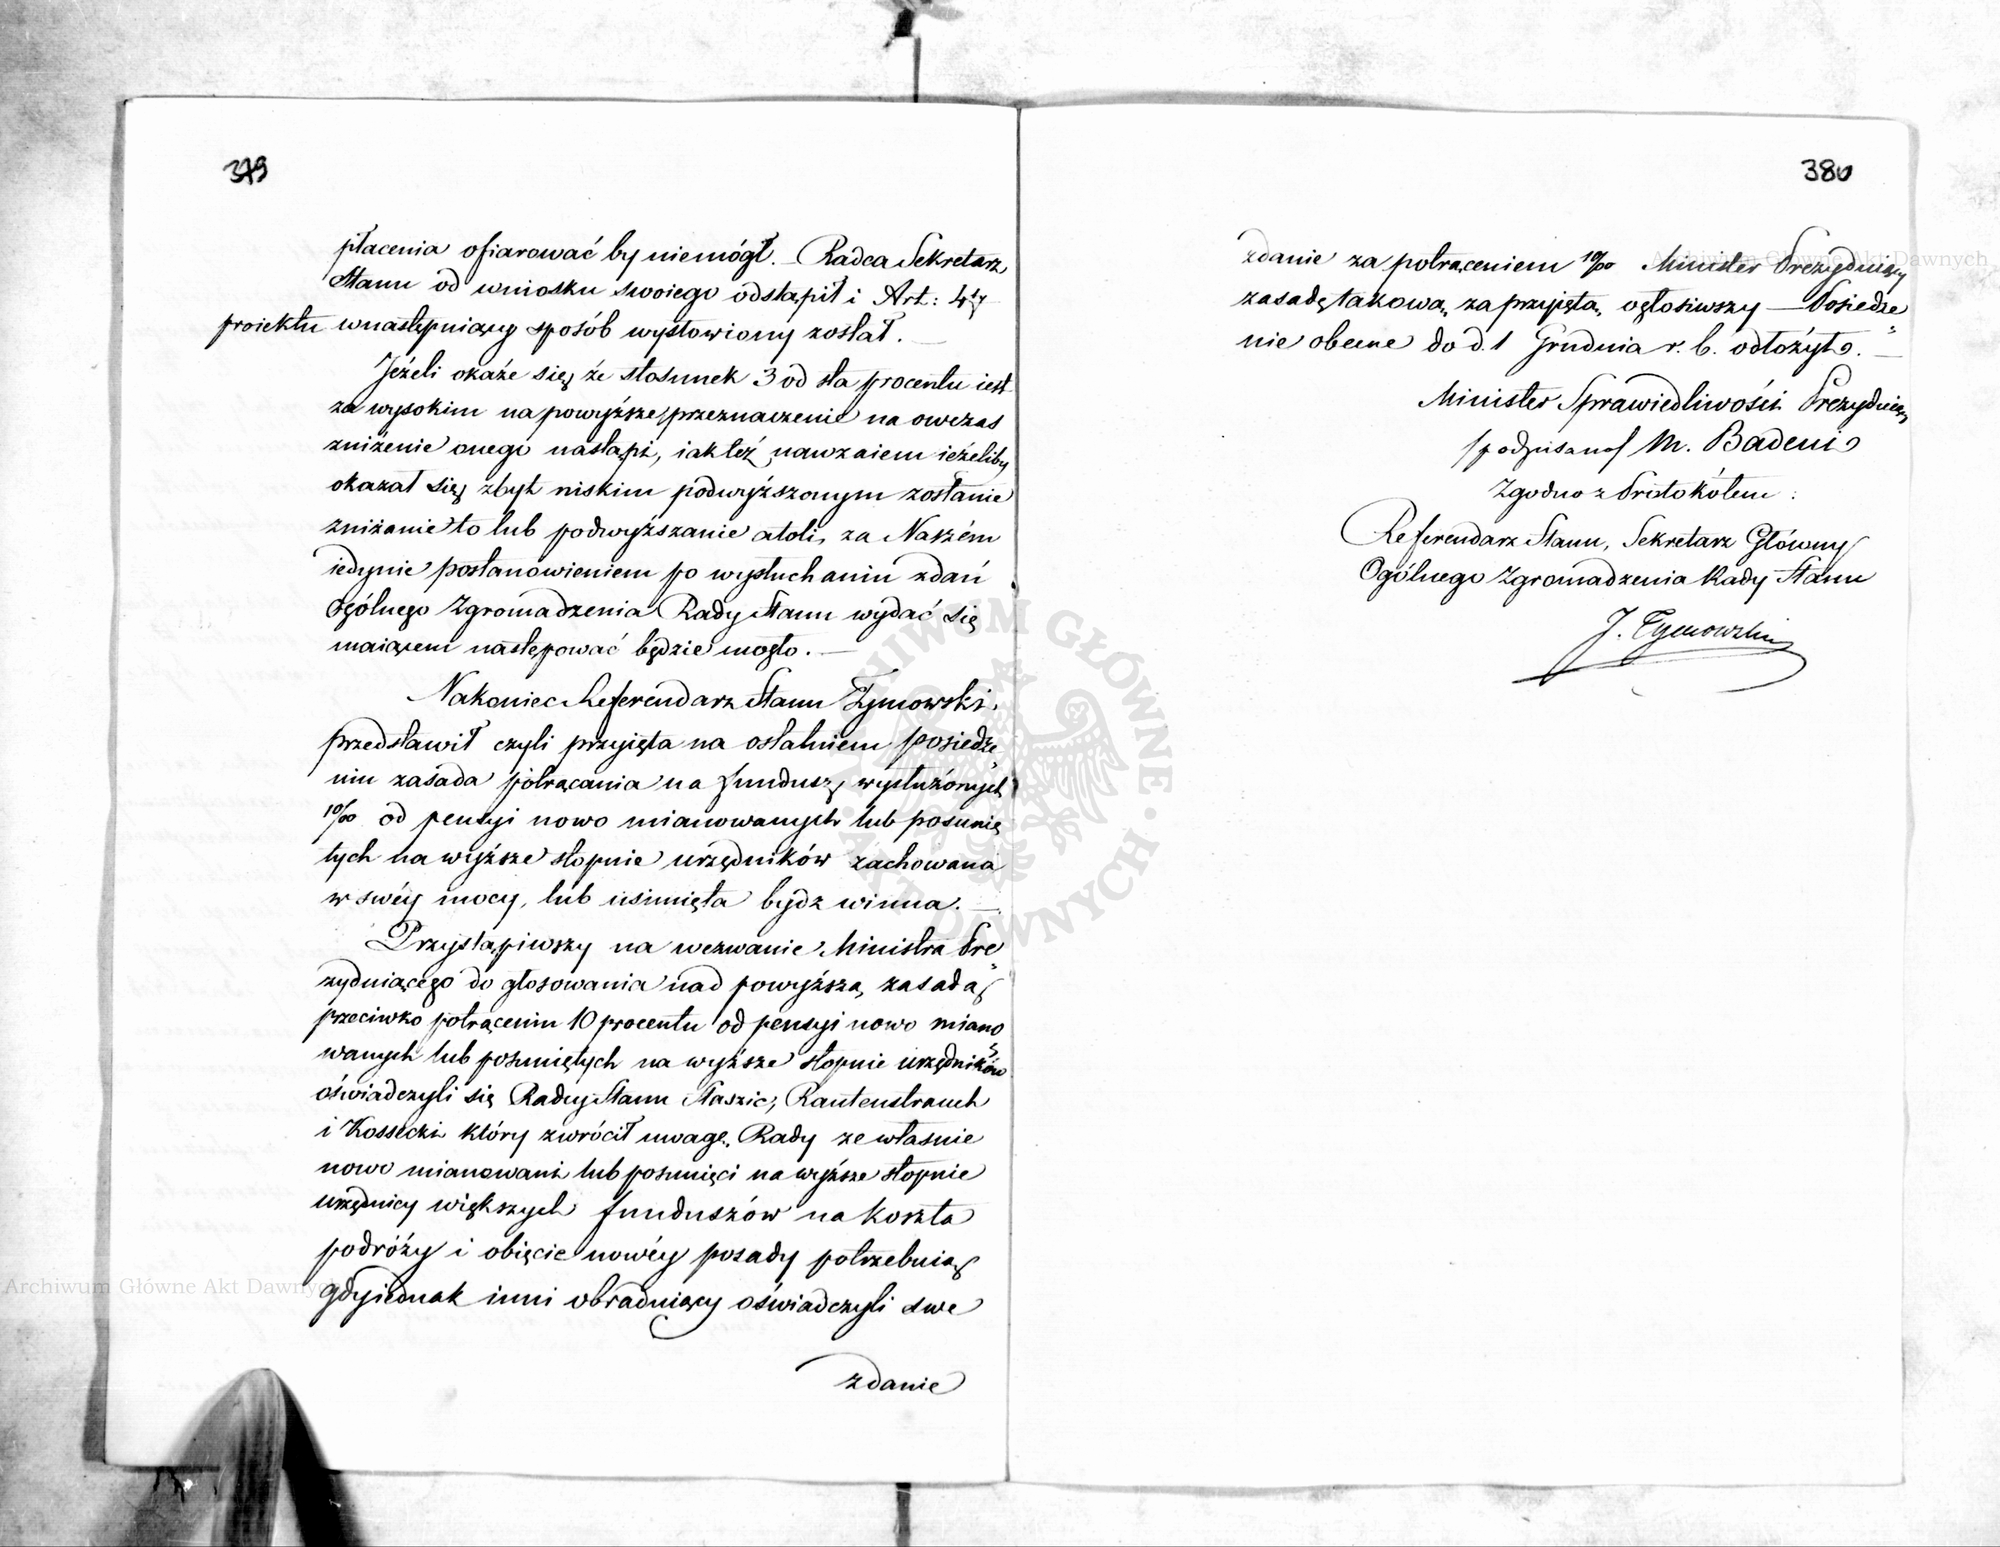 379
płacenia ofiarować by niemógł. — Radca Sekretarz
Stanu od wniosku swoiego odstąpił i Art: 4ty
proiektu wnastępuiący sposób wysłowiony został. —
Jeżeli okaże się że stosunek 3 od sta procentu iest
za wysokim na powyższe przeznaczenie na owczas
zniżenie onego nastąpi, iak też nawzaiem ieżeliby
okazał się zbyt niskim podwyższonym zostanie
zniżanie to lub podwyższanie atoli, za Naszém
iedynie postanowieniem po wysłuchaniu zdań
Ogólnego Zgromadzenia Rady Stanu wydać się
maiącem następować będzie mogło. —
Nakoniec Referendarz Stanu Tymowski
przedstawił czyli przyięta na ostatniem posiedze
niu zasada potrącania na fundusz wysłużonych
10/00 od pensyi nowo mianowanych lub posunię
tych na wyższe stopnie urzędników zachowana
w swéy mocy, lub usunięta bydz winna. —
Przystąpiwszy na wezwanie Ministra Pre
zyduiącego do głosowania nad powyższą zasadą
przeciwko potrąceniu 10 procentu od pensyi nowo miano
wanych lub posuniętych na wyższe stopnie urzędników
oświadczyli się Radcy Stanu Staszic, Rautenstrauch
i Kossecki który zwrócił uwagę Rady ze własnie
nowo mianowani lub posunięci na wyższe stopnie
urzędnicy większych funduszów na koszta
podróży i obięcie nowéy posady potrzebuią
gdyiednak inni obraduiący oświadczyli swe
zdanie
380
zdanie za potrąceniem 10/00 Minister Prezyduiący
zasadę takową za przyiętą ogłosiwszy — Posiedze
nie obecne do d. 1 Grudnia r. b. odłożył. —
Minister Sprawiedliwości Prezyduiący
/podpisano/ M. Badeni
Zgodno z Protokółem:
Referendarz Stanu, Sekretarz Główny
Ogólnego Zgromadzenia Rady Stanu
J. Tymowski
Archiwum Główne Akt Dawnych
Archiwum Główne Akt Dawnych
ARCHIWUM GŁÓWNE · AKT DAWNYCH ·